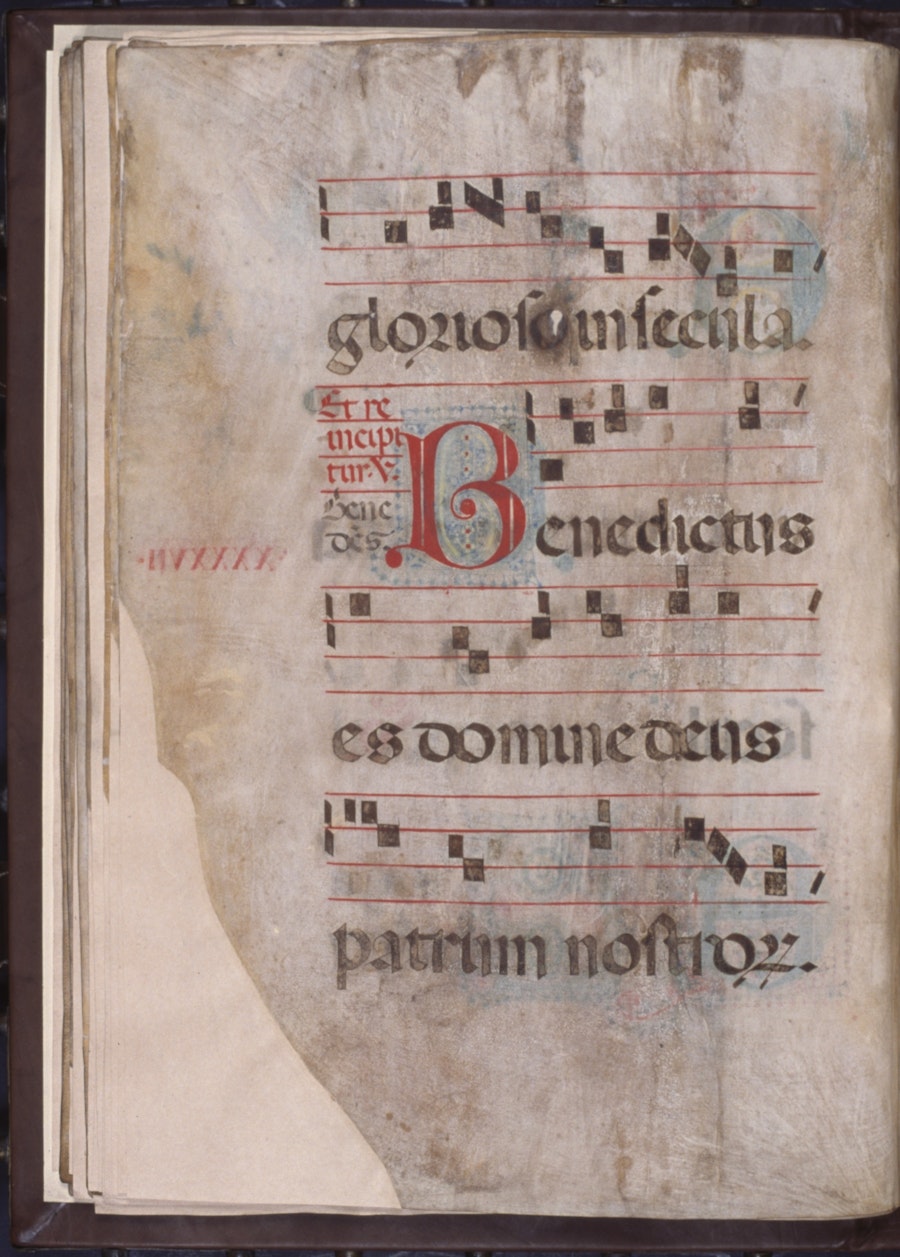 glorioso in secula.
Et re
incipi
tur. V.
Bene
dc̄s.
Benedictus
es domine deus
patrum nostroꝝ.